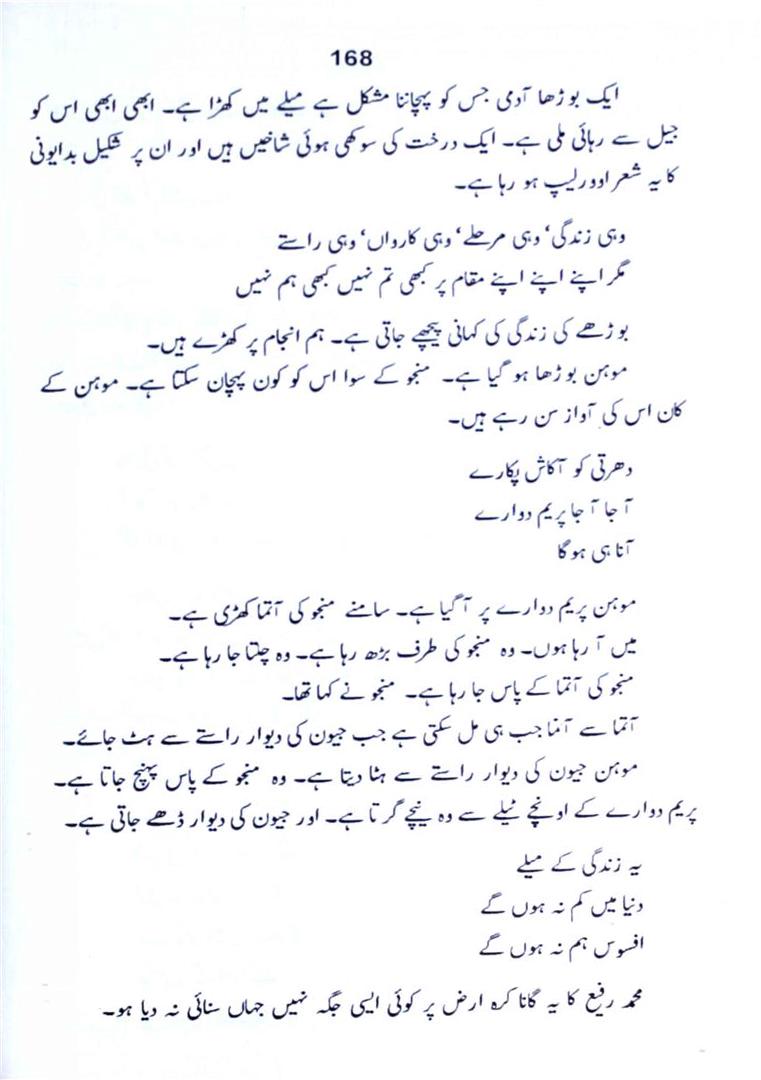 168
ایک بوڑھا آدمی جس کو پہچاننا مشکل ہے میلے میں کھڑا ہے۔ ابھی ابھی اس کو
جیل سے رہائی ملی ہے۔ ایک درخت کی سوکھی ہوئی شاخیں ہیں اور ان پر شکیل بدایونی
کا یہ شعر اوورلیپ ہو رہا ہے۔
وہی زندگی‘ وہی مرحلے‘ وہی کارواں‘ وہی راستے
مگر اپنے اپنے اپنے مقام پر کبھی تم نہیں کبھی ہم نہیں
بوڑھے کی زندگی کی کہانی پیچھے جاتی ہے۔ ہم انجام پر کھڑے ہیں۔
موہن بوڑھا ہو گیا ہے۔ منجو کے سوا اس کو کون پہچان سکتا ہے۔ موہن کے
کان اس کی آواز سن رہے ہیں۔
دھرتی کو آکاش پکارے
آ جا آ جا پریم دوارے
آنا ہی ہو گا
موہن پریم دوارے پر آ گیا ہے۔ سامنے منجو کی آتما کھڑی ہے۔
میں آ رہا ہوں۔ وہ منجو کی طرف بڑھ رہا ہے۔ وہ چلتا جا رہا ہے۔
منجو کی آتما کے پاس جا رہا ہے۔ منجو نے کہا تھا۔
آتما سے آتما جب ہی مل سکتی ہے جب جیون کی دیوار راستے سے ہٹ جائے۔
موہن جیون کی دیوار راستے سے ہٹا دیتا ہے۔ وہ منجو کے پاس پہنچ جاتا ہے۔
پریم دوارے کے اونچے ٹیلے سے وہ نیچے گرتا ہے۔ اور جیون کی دیوار ڈھے جاتی ہے۔
یہ زندگی کے میلے
دنیا میں کم نہ ہوں گے
افسوس ہم نہ ہوں گے
محمد رفیع کا یہ گانا کرہ ارض پر کوئی ایسی جگہ نہیں جہاں سنائی نہ دیا ہو۔